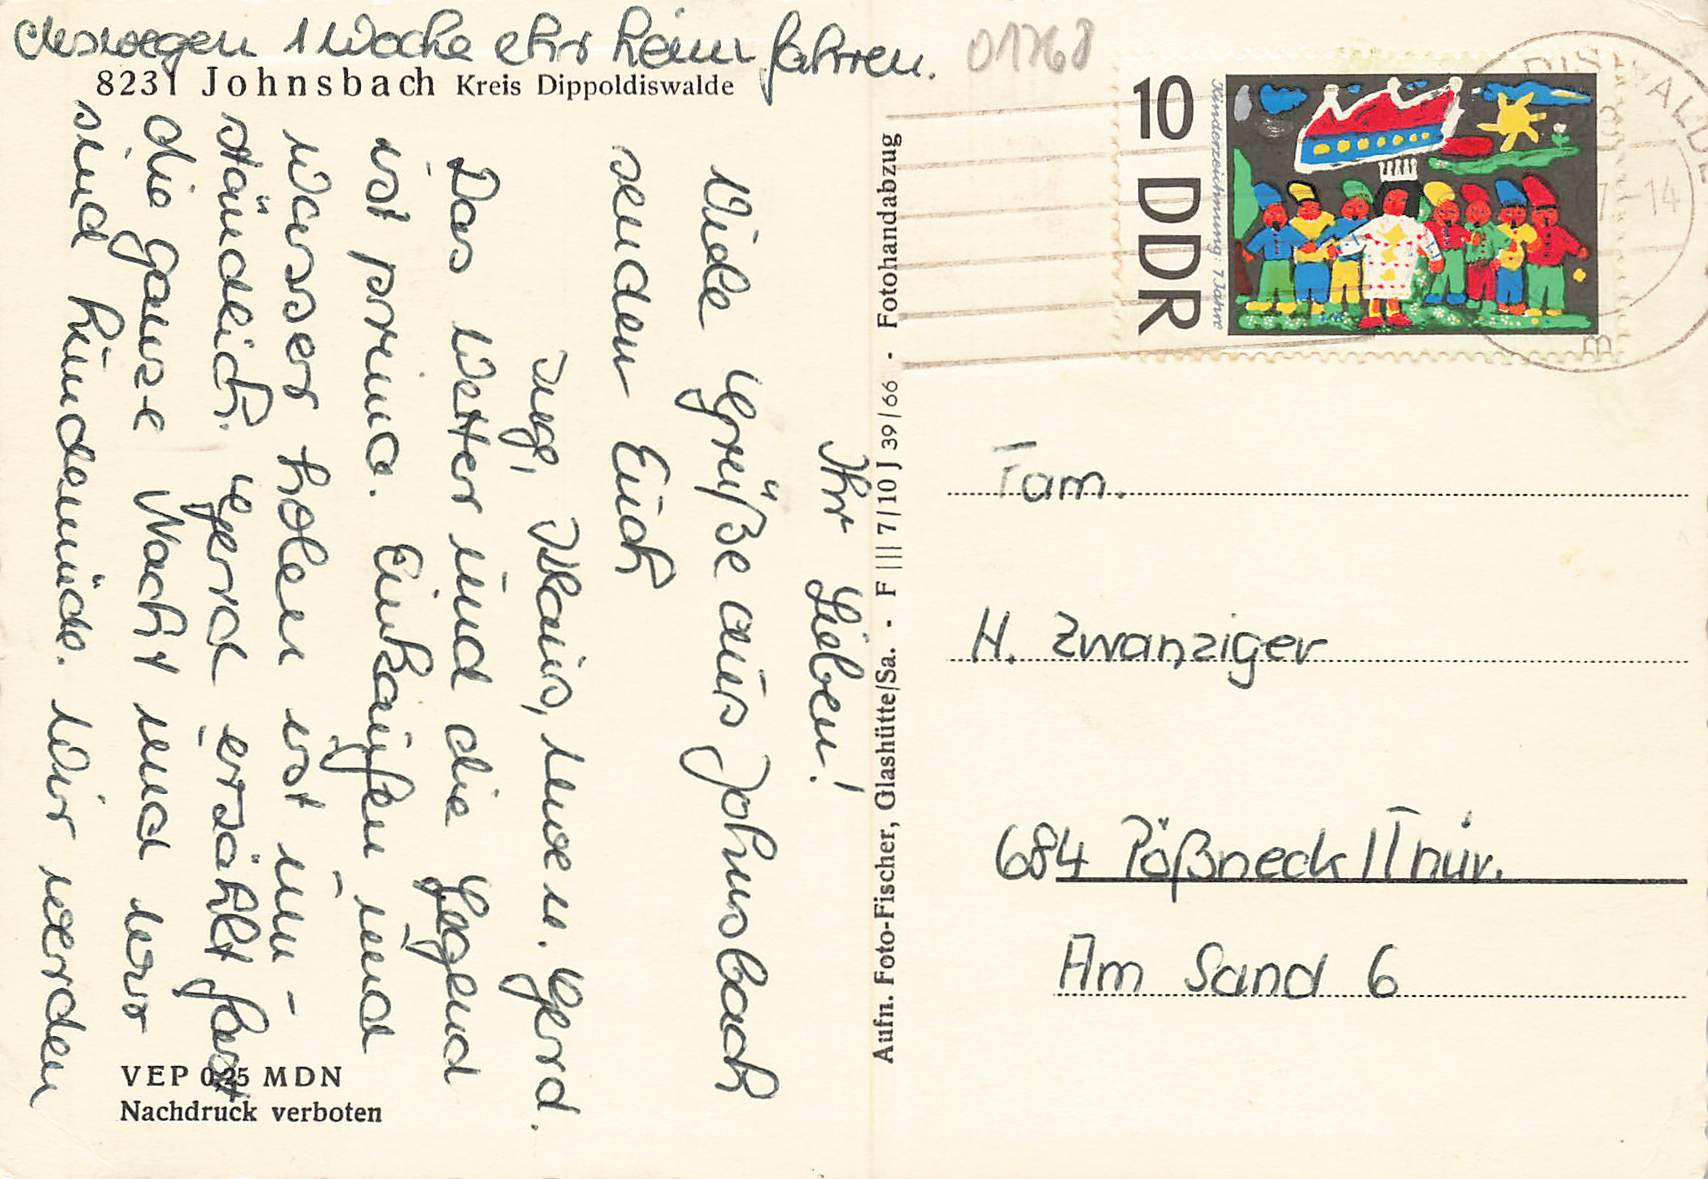 8231 Johnsbach Kreis Dippoldiswalde
Ihr Lieben!
Viele Grüße aus Johnsbach
senden Euch
Inge, Klaus, Uwe u. Gerd.
Das Wetter und die Gegend
ist prima. Einkaufen und
Wasser holen ist um-
ständlich. Gerd erzählt fast
die ganze Nacht und wir
sind hundemüde. Wir werden
deswegen 1 Woche ehr heim fahren.
VEP 0,25 MDN
Nachdruck verboten
Aufn. Foto-Fischer, Glashütte/Sa. · F III 7/10 J 39/66 · Fotohandabzug
01768
10 DDR
Kinderzeichnung: 7 Jahre
14
m
Fam.
H. Zwanziger
684 Pößneck/Thür.
Am Sand 6